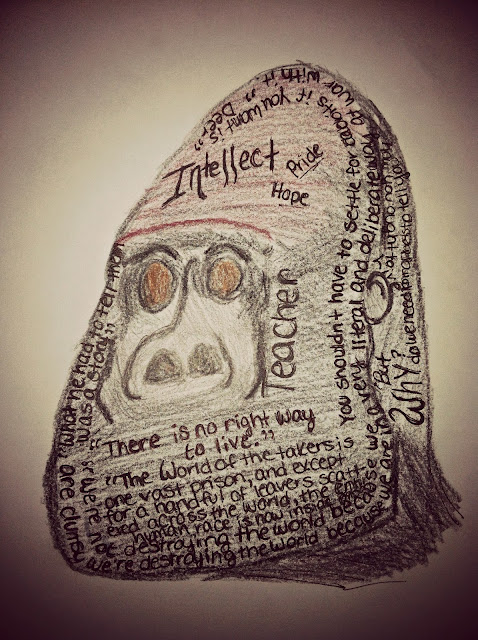 Intellect
Pride
Hope
Teacher
You shouldnt have to settle for rabbits if you want Deer..."
"What he had
was a story to tell them"
"There is no right way
to live..."
"The world of the takers is
one vast prison, and except
for a handful of leavers scatt-
ered across the world, the entire
human race is now inside
"we're not destroying the world because we are clumsy
we're destroying the world because we are in a very literal and deliberate way at war with it."
But
Why?
do we need prophets to tell us